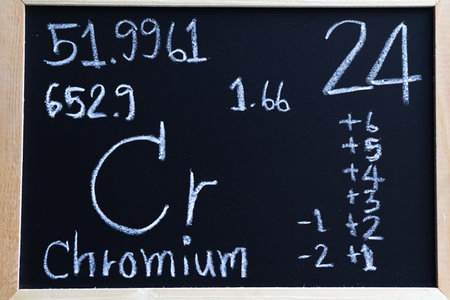 51.9961 24
652.9 1.66
+6
+5
+4
+3
-1 +2
-2 +1
Cr
Chromium